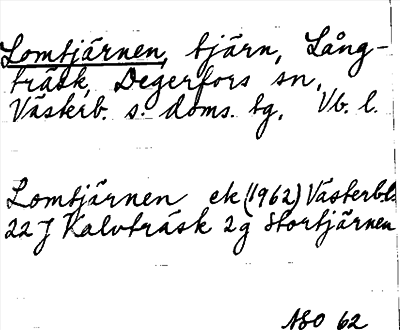 Lomtjärnen, tjärn, Lång-
träsk, Degerfors sn,
Västerb. s. doms. tg. Vb. l.
Lomtjärnen ek (1962) Västerb.l.
22 J Kalvträsk 2g Stortjärnen
ASO 62